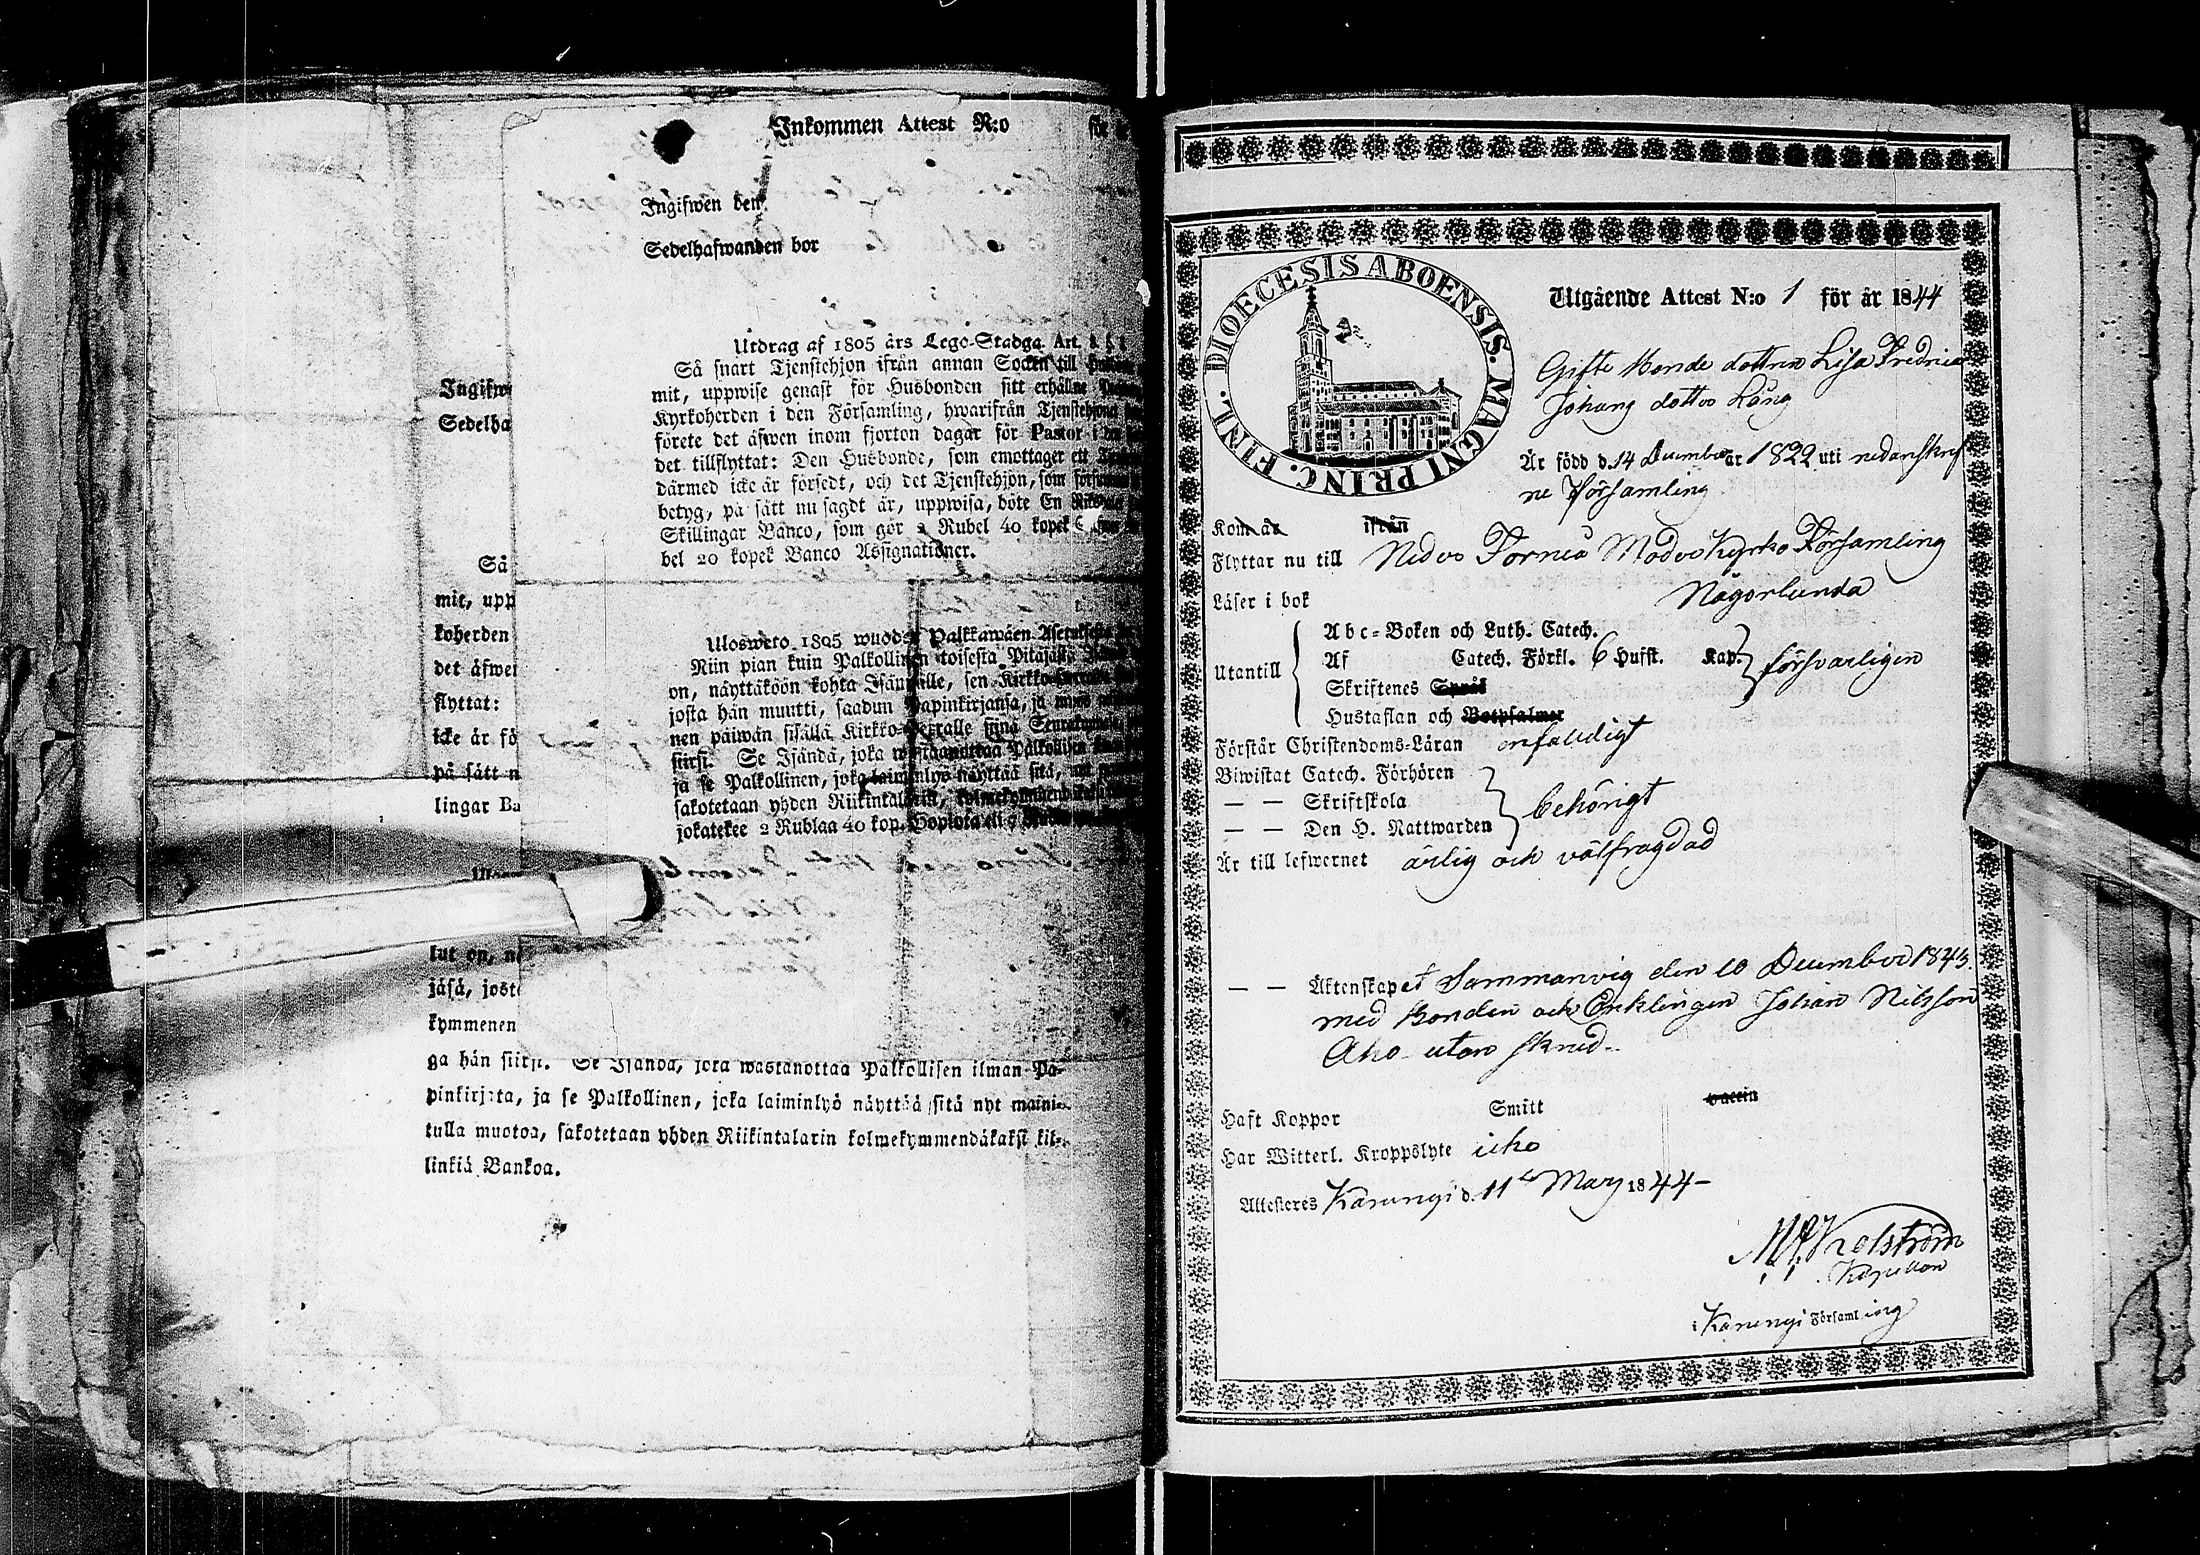 Inkommen Attest N:o
för
Ingifwen den
Sedelhafwanden bor
Utdrag af 1805 års Lego-Stadga. Art.
Så snart Tjenstehjon ifrån annan Socken till
mit, uppwise genast för Husbonden sitt erhållne
Kyrkoherden i den Församling, hwarifrån Tjenstehjonet
förete det äfwen inom fjorton dagar för Pastor i
det tillflyttat: Den Husbonde, som emottager ett
därmed icke är försedt, och det Tjenstehjon, som
betyg, på sätt nu sagdt är, uppwisa, böte En
Skillingar Banco, som gör 2 Rubel 40 kopek
bel 20 kopek Banco Assignationer.
Ulosweto 1805 wuoden Palkkawäen
Niin pian kuin Palkollinen toisesta Pitäjästä
on, näyttäköön kohta Isännälle, sen
josta hän muutti, saadun papinkirjansa, ja
nen päiwän sisällä Kirkko-Herralle siinä
siirsi. Se Isändä, joka wastaanottaa Palkollisen
ja se Palkollinen, joka laiminlyö näyttää sitä,
sakotetaan yhden Riikintalarin,
jokatekee 2 Rublaa 40 kop.
Ingifwe
Sedelha
Så
mit, upp
koherden
det äfwe
flyttat:
icke är fö
på sätt n
lingar Ba
lut on, n
jäsä, jost
kymmenen
ga hän siirsi. Se Isända, joka wastanottaa Palkollisen ilman Pa-
pinkirjata, ja se Palkollinen, joka laiminlyö näyttää sitä nyt maini-
tulla muotoa, sakotetaan yhden Riikintalarin kolmekymmendäkaksi kil-
linkiä Bankoa.
DIOECESIS ABOENSIS. MAGNI PRINC. FINL.
Utgående Attest N:o 1 för år 1844
Gifte Bonde dottren Lisa Fredrica
Johans dotter Lång
Är född d. 14 December år 1822 uti nedanskref
ne Församling
Kom år ifrån
Flyttar nu till Neder Torneå Moder Kyrko Församling
Läser i bok Någorlunda
Abc-Boken och Luth. Catech.
Utantill Af Catech. Förkl. 6 Hufst. Kap. försvarligen
Skriftenes Språk
Hustaflan och Botpsalmer
Förstår Christendoms-Läran enfaldigt
Biwistat Catech. Förhören
— — Skriftskola behörigt
— — Den H. Nattwarden
Är till lefwernet ärlig och välfrägdad
— — Äktenskapet Sammanvig den 10 December 1843.
med Bonden och Enklingen Johan Nilsson
Aho utan skrud.
Haft Koppor Smitt vaccin
Har Witterl. Kroppslyte icke
Attesteres Karungi d. 11te Mars 1844 –
Kolström
Kapellan
i Karungi Församling